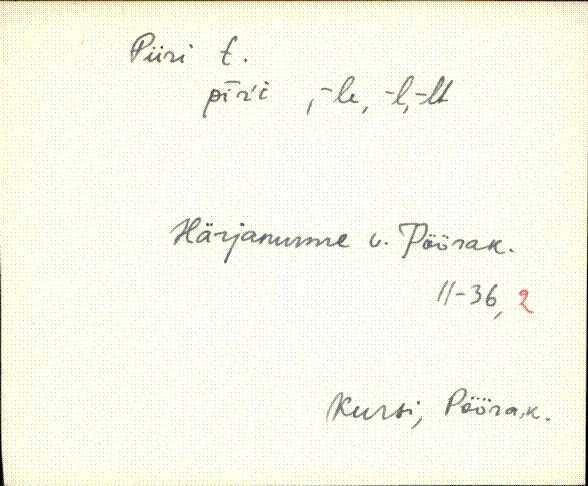 Piiri t.
pīŕi , -le, -l, -lt
Härjanurme v. Pöörak.
11-36, 2
Kursi, Pööra,k.